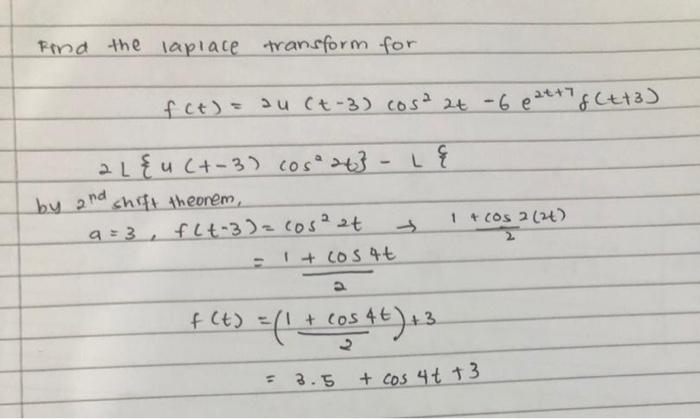 Find the laplace transform for
f(t) = 2u (t-3) cos² 2t - 6 e^{2t+7} δ(t+3)
2 L { u (t-3) cos² 2t } - L {
by 2nd shift theorem,
a = 3, f(t-3) = cos² 2t → \frac{1 + cos 2(2t)}{2}
= \frac{1 + cos 4t}{2}
f(t) = (\frac{1 + cos 4t}{2}) + 3
= 3.5 + cos 4t + 3